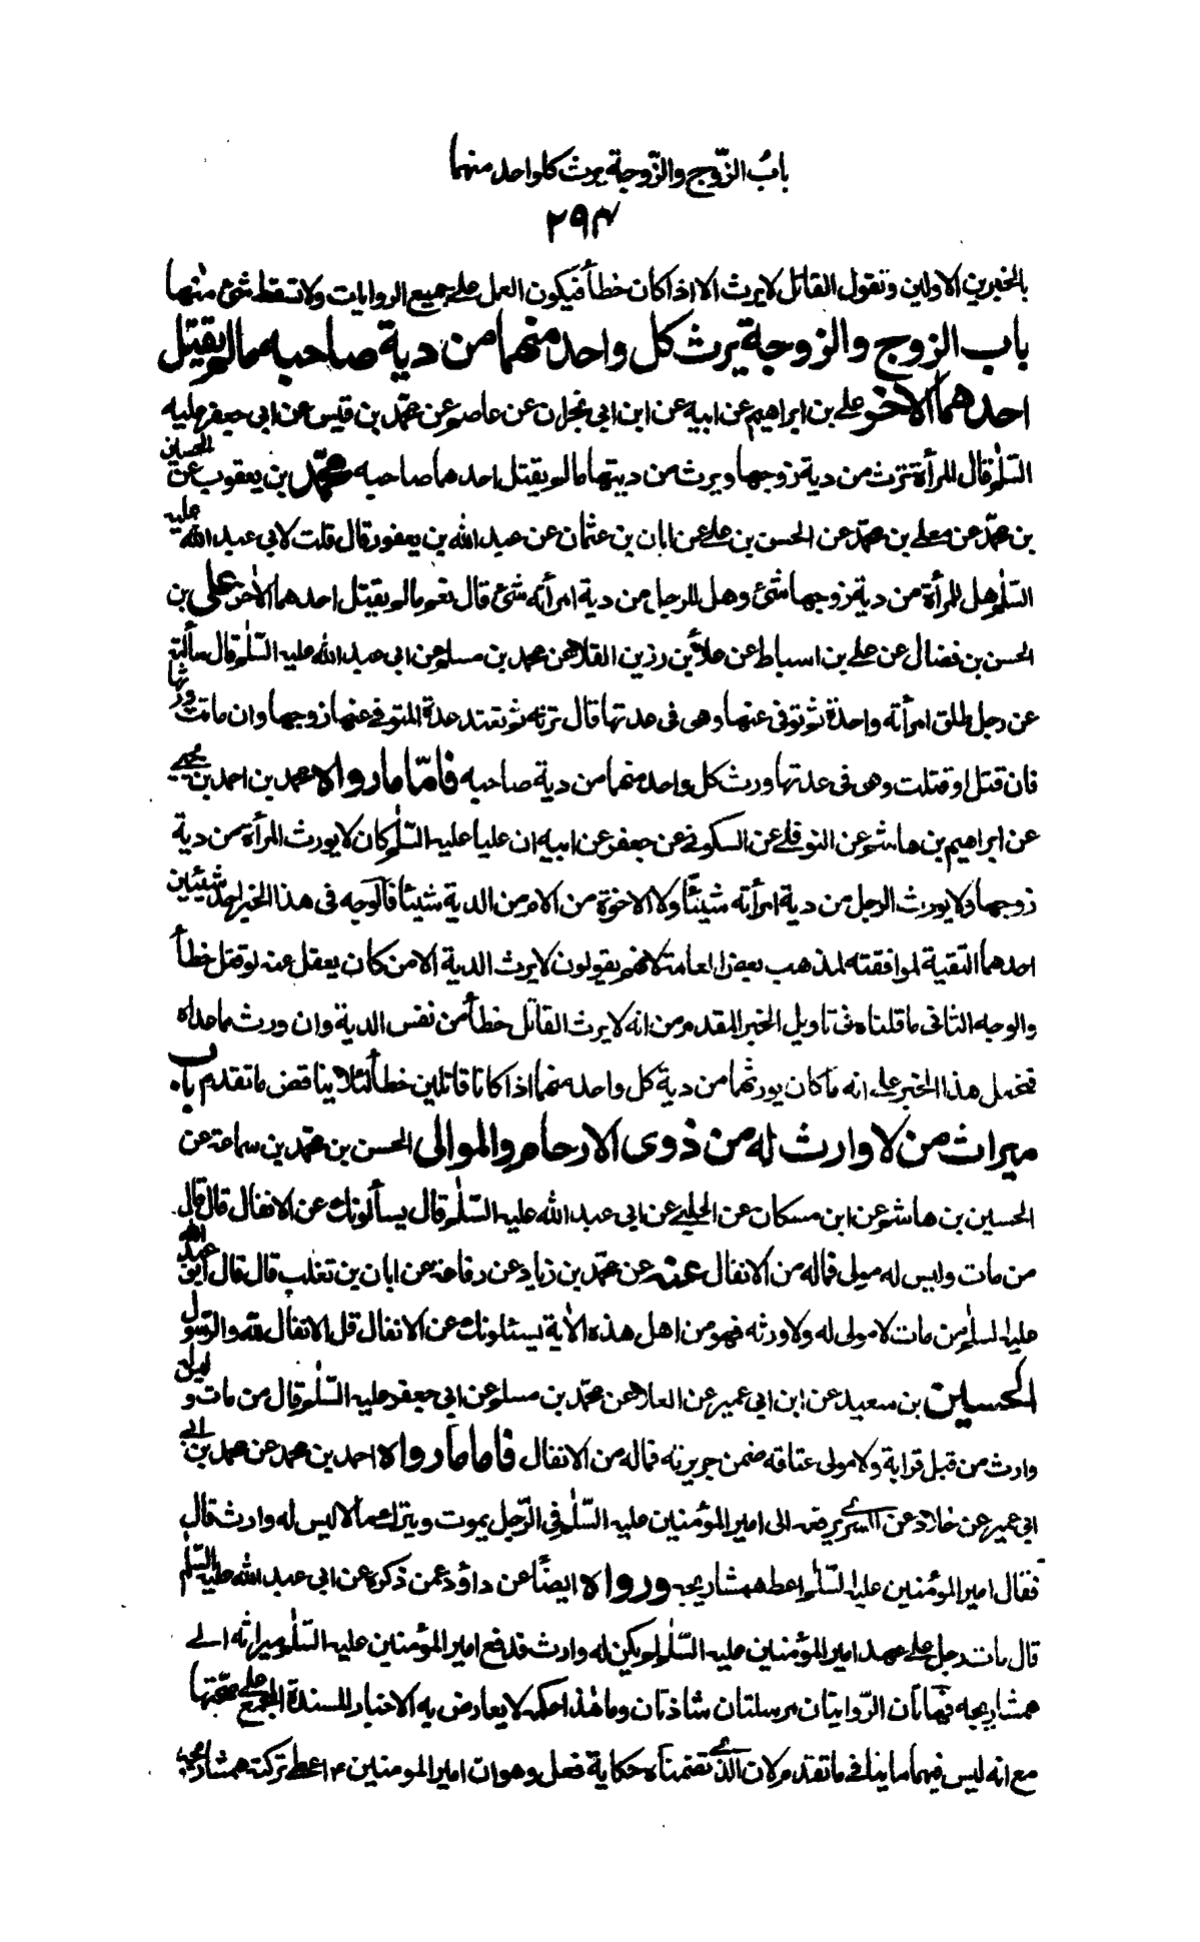 بابُ الزّوج والزّوجة يرث كلواحد منهما
٢٩٣
بالخبرين الاولين ونقول القاتل لا يرث الا اذا كان خطأ فيكون العمل على جميع الروايات ولا تسقط شئ منها
باب الزوج والزوجة يرث كل واحد منهما من دية صاحبه مالم يقتل
احدهما الاخر على بن ابراهيم عن ابيه عن ابن ابى نجران عن عاصم عن محمّد بن قيس عن ابى جعفر عليه
السّلم قال المرأة ترث من دية زوجها ويرث من ديتها مالم يقتل احدهما صاحبه محمّد بن يعقوب عن الحسين
بن محمّد عن معلى بن محمّد عن الحسن بن على عن ابان بن عثمان عن عبد الله بن يعفور قال قلت لابى عبد الله عليه
السّلم هل للمرأة من دية زوجها شئ وهل للرجل من دية امرأته شئ قال نعم مالم يقتل احدهما الاخر على بن
الحسن بن فضال عن على بن اسباط عن علاء بن رزين القلاء عن محمد بن مسلم عن ابى عبد الله عليه السّلم قال سألته
عن رجل طلق امرأته واحدة ثم توفى عنها وهى فى عدتها قال ترثه ثم تعتد عدة المتوفى عنها زوجها وان ماتت ورثها
فان قتل او قتلت وهى فى عدتها ورث كل واحد منهما من دية صاحبه فامّا ما رواه محمد بن احمد بن يحيى
عن ابراهيم بن هاشم عن النوفلى عن السكونى عن جعفر عن ابيه ان عليا عليه السّلم كان لا يورث المرأة من دية
زوجها ولا يورث الرجل من دية امرأته شيئًا ولا الاخوة من الام من الدية شيئا فالوجه فى هذا الخبر احد شيئين
احدهما التقية لموافقته لمذهب بعض العامة لانهم يقولون لا يرث الدية الا من كان يعقل عنه لو قتل خطأ
والوجه الثانى ما قلناه فى تاويل الخبر المقدم من انه لا يرث القاتل خطأ من نفس الدية وان ورث ما عداه
فنحمل هذا الخبر على انه ما كان يورثهما من دية كل واحد منهما اذا كانا قاتلين خطأ لئلا يناقض ما تقدم باب
ميراث من لا وارث له من ذوى الارحام والموالى الحسن بن محمّد بن سماعة عن
الحسين بن هاشم عن ابن مسكان عن الحلبى عن ابى عبد الله عليه السّلم قال يسألونك عن الانفال قال قال
من مات وليس له مولى فماله من الانفال عنه عن محمّد بن زياد عن رفاعة عن ابان بن تغلب قال قال ابو عبد الله
عليه السلم من مات لا مولى له ولا ورثه فهو من اهل هذه الاية يسئلونك عن الانفال قل الانفال لله والرّسول
الحسين بن سعيد عن ابن ابى عمير عن العلاء عن محمّد بن مسلم عن ابى جعفر عليه السّلم قال من مات وليس له
وارث من قبل قرابة ولا مولى عتاقه ضمن جريرته فماله من الانفال فاما ما رواه احمد بن محمد عن محمد بن ابى
ابى عمير عن خلاد عن السرى يرفعه الى امير المؤمنين عليه السّلم فى الرّجل يموت ويترك مالا ليس له وارث قال
فقال امير المؤمنين عليه السّلم اعط همشاريجه ورواه ايضًا عن داؤد عمن ذكره عن ابى عبد الله عليه السّلم
قال مات رجل على عهد امير المؤمنين عليه السّلم لم يكن له وارث فدفع امير المؤمنين عليه السّلم ميراثه الى
همشاريجه فهاتان الرّوايتان مرسلتان شاذتان وما هذا حكمه لا يعارض به الاخبار المسندة المجمع على صحّتها
مع انه ليس فيهما ما ينافى ما تقدم لان الذى تضمناه حكاية فعل وهو ان امير المومنين ع اعطى تركته همشاريجه